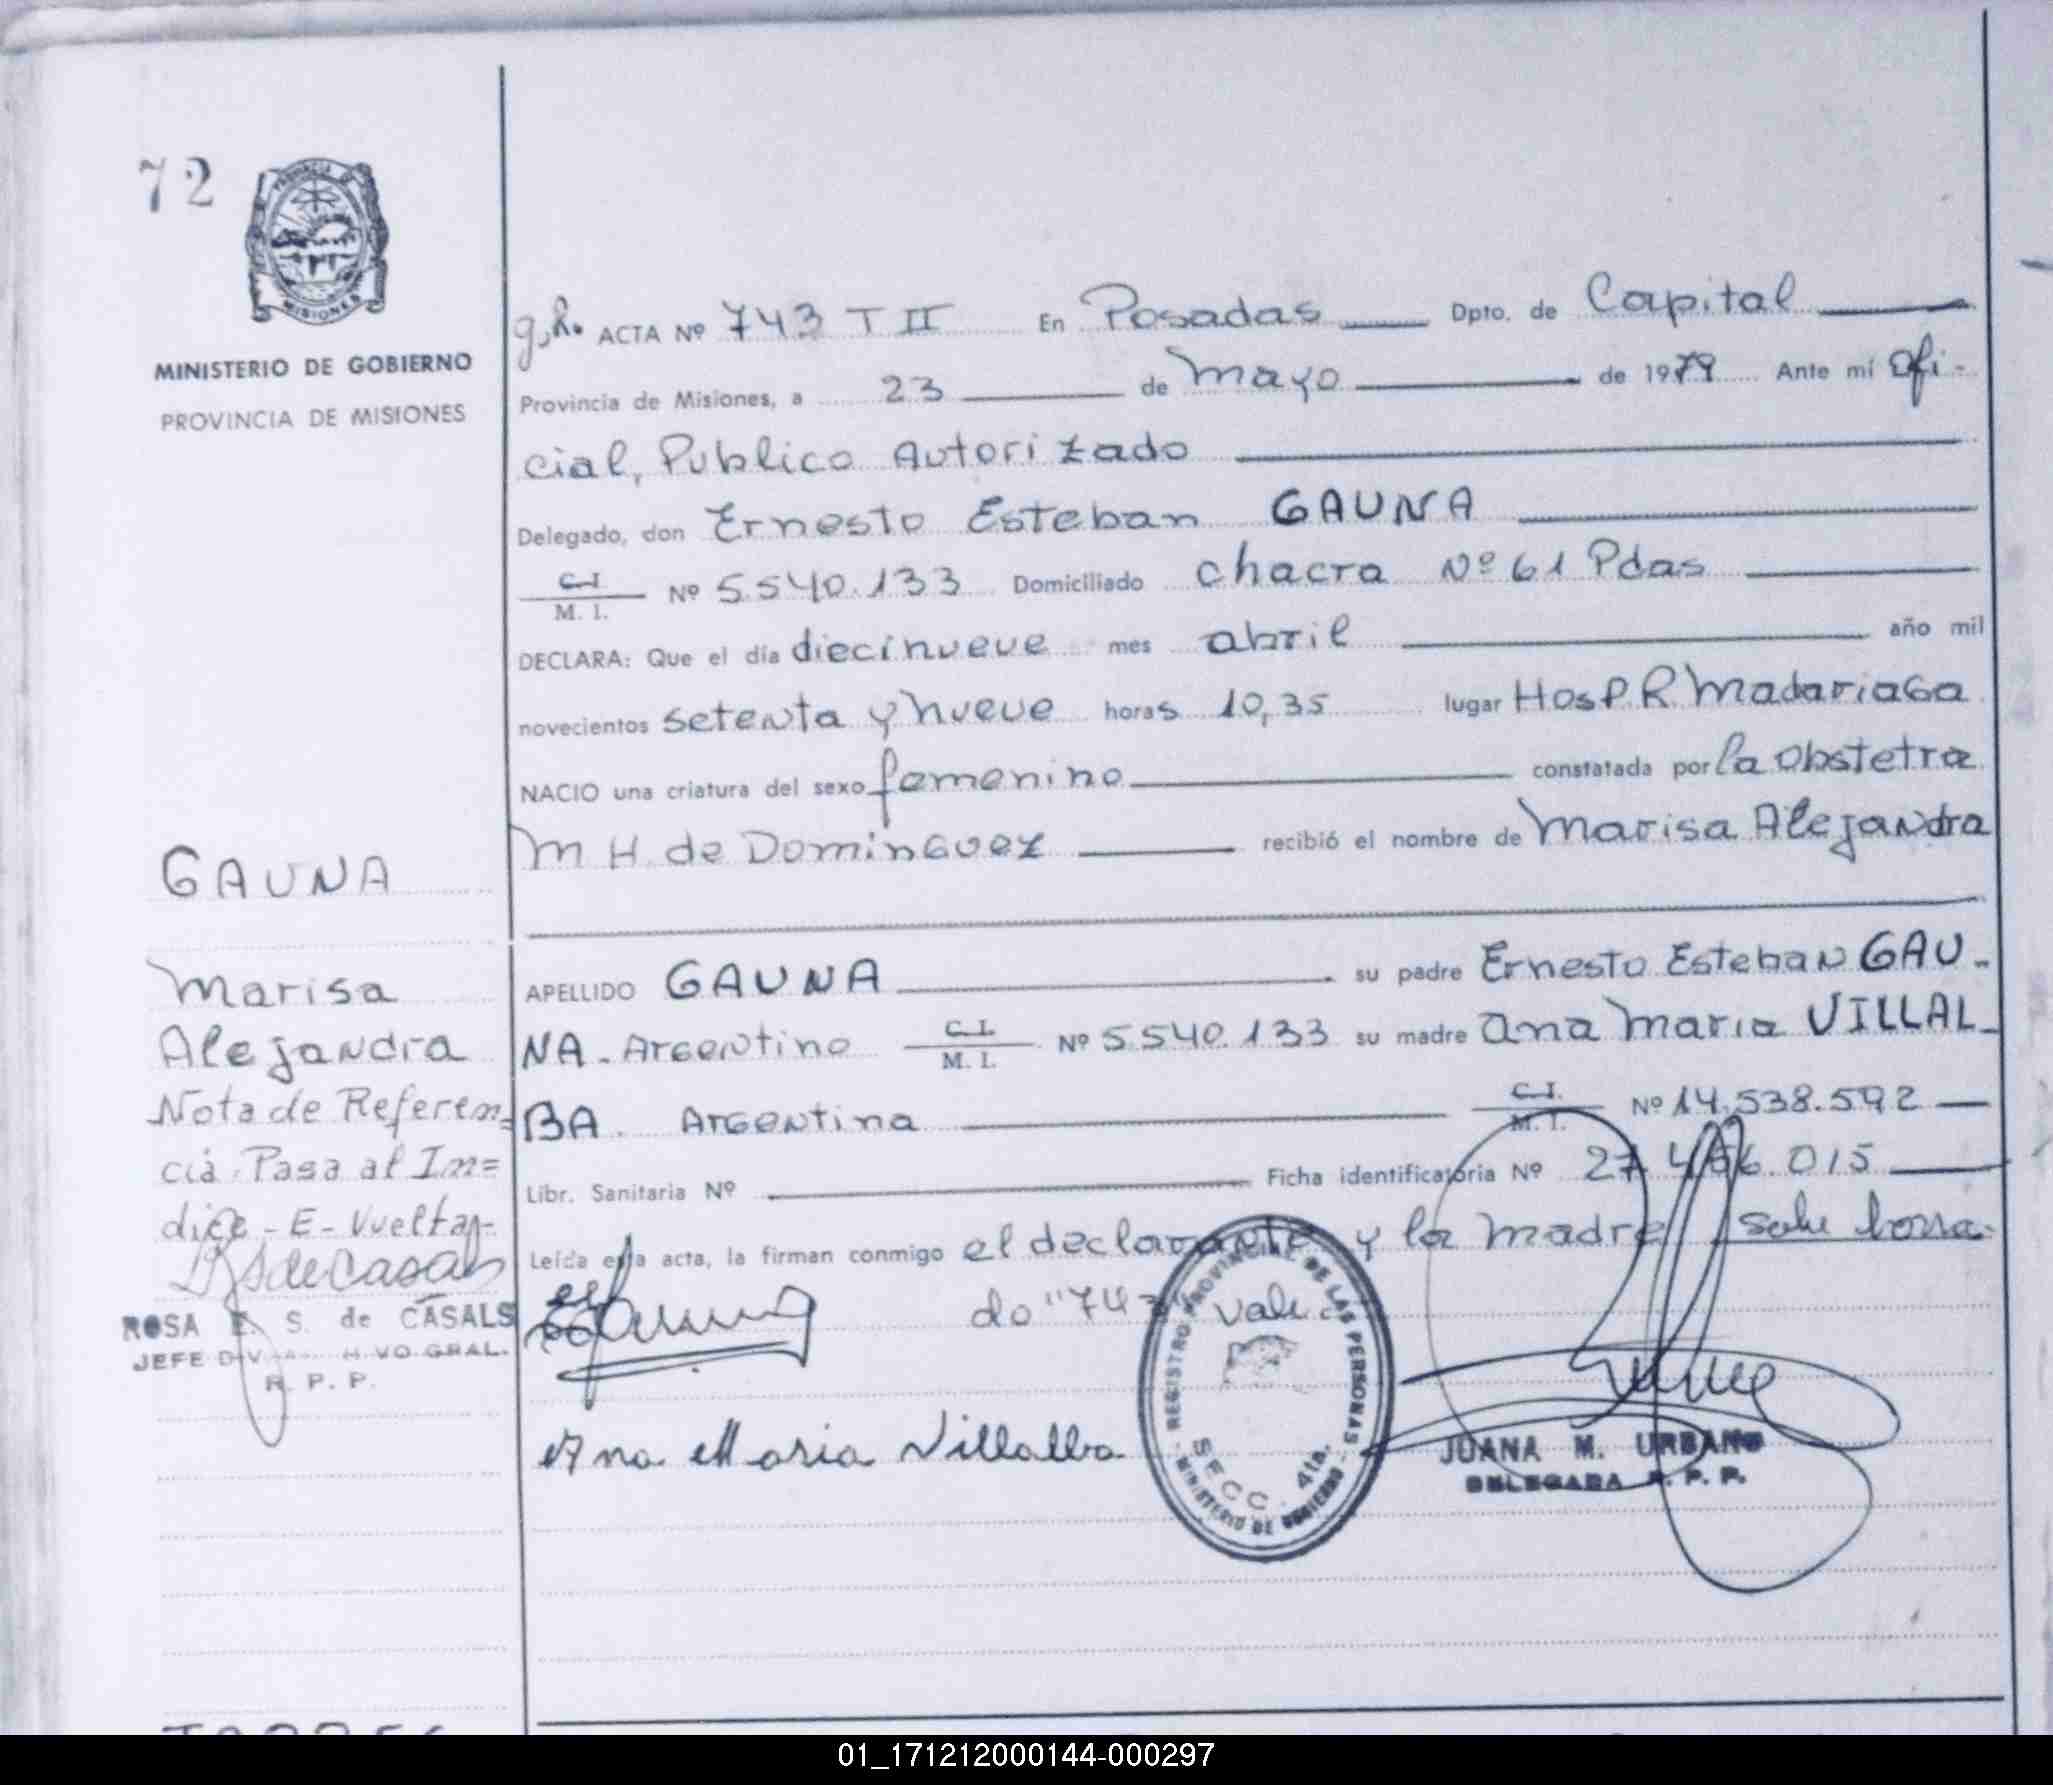 72
MINISTERIO DE GOBIERNO
PROVINCIA DE MISIONES
g.h. ACTA Nº 743 T II En Posadas Dpto. de Capital
Provincia de Misiones, a 23 de Mayo de 1979 Ante mí Ofi-
cial, Publico Autorizado
Delegado, don Ernesto Esteban GAUNA
C.I.
M. I. Nº 5.540.133 Domiciliado chacra Nº 61 Pdas
DECLARA: Que el día diecinueve mes abril año mil
novecientos setenta y nueve horas 10,35 lugar Hosp. R. Madariaga
NACIO una criatura del sexo femenino constatada por la Obstetra
M H de Dominguez recibió el nombre de Marisa Alejandra
APELLIDO GAUNA su padre Ernesto Esteban GAU-
NA - Argentino C.I. M. I. Nº 5.540.133 su madre Ana Maria VILLAL-
BA. Argentina C.I. M. I. Nº 14.538.592
Libr. Sanitaria Nº Ficha identificatoria Nº 27.456.015
Leída esta acta, la firman conmigo el declarante y la madre sobre borra-
do "743" vale
Ana Maria Villalba
REGISTRO PROVINCIAL DE LAS PERSONAS
SECC. 4ta.
MINISTERIO DE GOBIERNO
JUANA M. URBANO
DELEGADA R. P. P.
GAUNA
Marisa
Alejandra
Nota de Referen=
cia. Pasa al In=
dice - E - Vuelta-
ROSA E. S. de CASALS
JEFE DIV GRAL.
R. P. P.
01_171212000144-000297